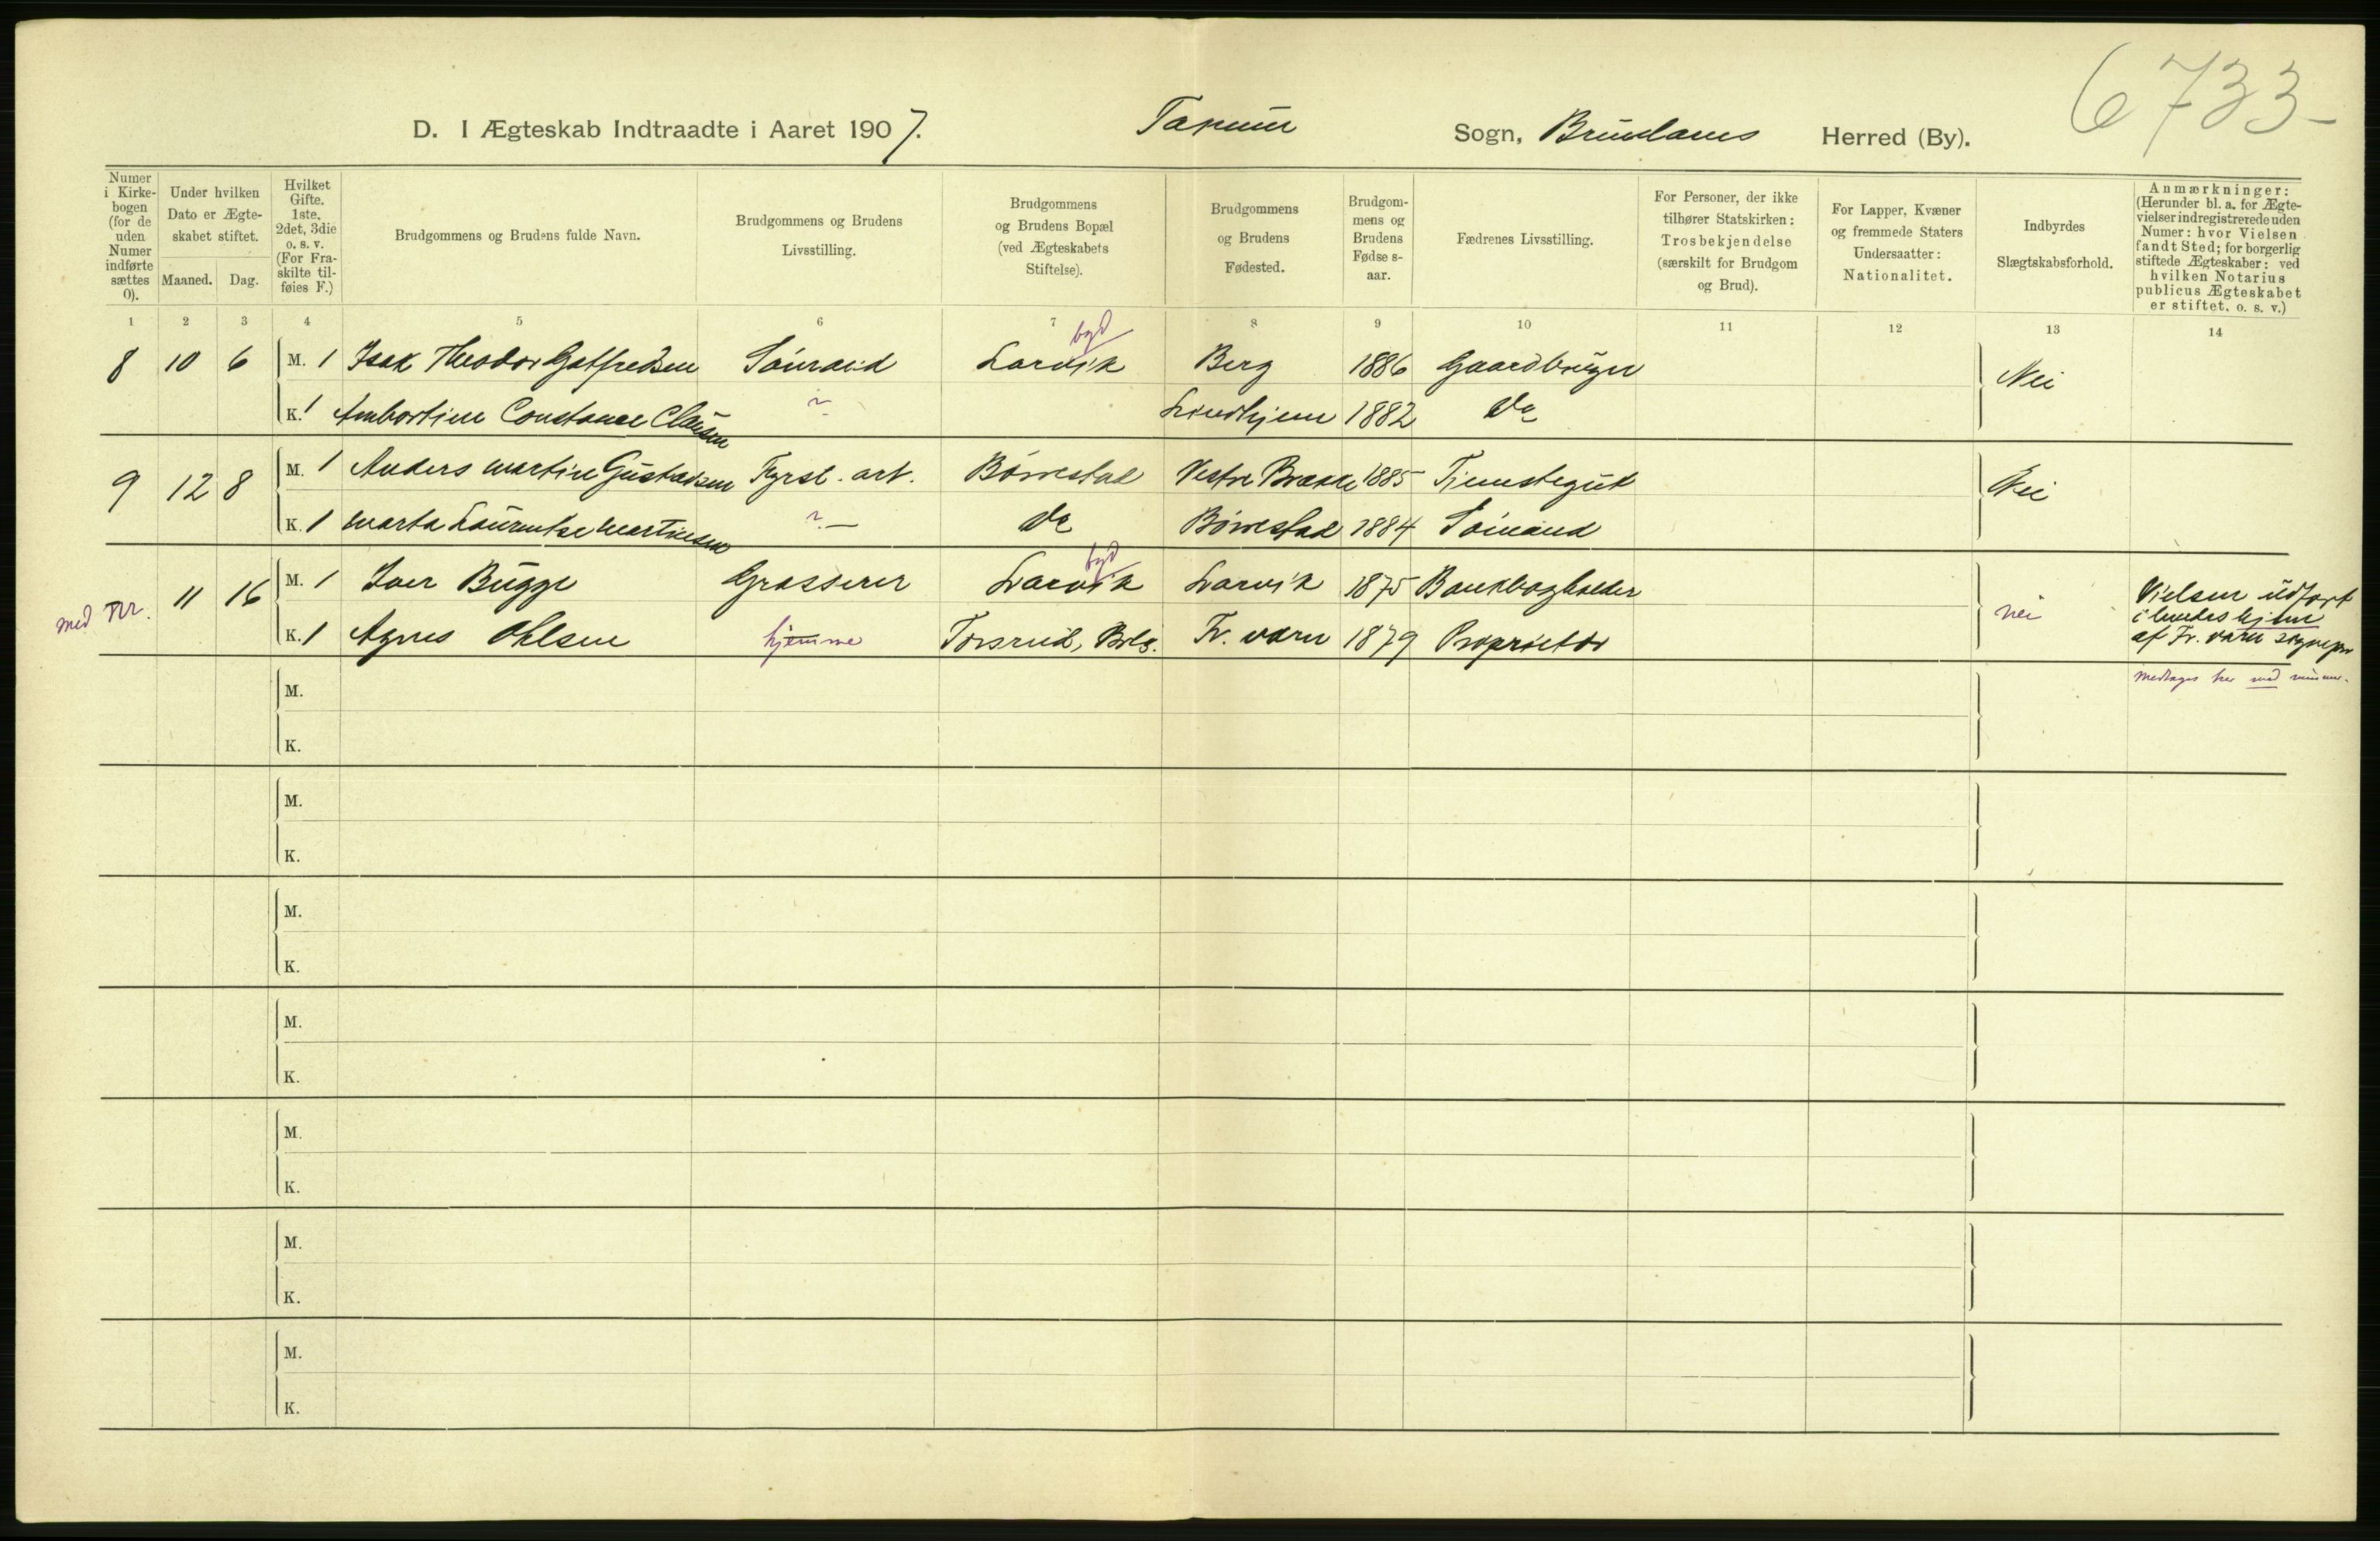 6733-
D. I Ægteskab Indtraadte i Aaret 1907. Tanum Sogn, Brunlanes Herred (By).
Numer i Kirkebogen (for de uden Numer indførte sættes 0).
Under hvilken Dato er Ægteskabet stiftet.
Maaned. Dag.
Hvilket Gifte. 1ste, 2det, 3die o. s. v. (For Fraskilte tilføies F.)
Brudgommens og Brudens fulde Navn.
Brudgommens og Brudens Livsstilling.
Brudgommens og Brudens Bopæl (ved Ægteskabets Stiftelse).
Brudgommens og Brudens Fødested.
Brudgommens og Brudens Fødse s-aar.
Fædrenes Livsstilling.
For Personer, der ikke tilhører Statskirken: Trosbekjendelse (særskilt for Brudgom og Brud).
For Lapper, Kvæner og fremmede Staters Undersaatter: Nationalitet.
Indbyrdes Slægtskabsforhold.
Anmærkninger: (Herunder bl. a. for Ægtevielser indregistrerede uden Numer: hvor Vielsen fandt Sted; for borgerlig stiftede Ægteskaber: ved hvilken Notarius publicus Ægteskabet er stiftet. o. s. v.)
1 2 3 4 5 6 7 8 9 10 11 12 13 14
byd
8 10 6 M. 1 Isak Theodor Gotfredsen Sømand Larvik Berg 1886 Gaardbruger Nei
K. 1 Ambortine Constance Clausen ? Lindhjem 1882 Do
9 12 8 M. 1 Anders Martin Gustavsen Fyrst. arb. Børrestad Vestre Brække 1885 Tjenstegut Nei
K. 1 Marta Laurentse Martinsen ? — Do Børrestad 1884 Sømand
byd
med Nr. 11 16 M. 1 Iver Bugge Grosserer Larvik Larvik 1875 Bankbogholder nei Vielsen udført
K. 1 Agnes Ohlsen hjemme Torsrud, Brls. Fr. værn 1879 Proprietær i brudes hjem
af Fr. værn sognepr
Medtages her med numer.
M.
K.
M.
K.
M.
K.
M.
K.
M.
K.
M.
K.
M.
K.